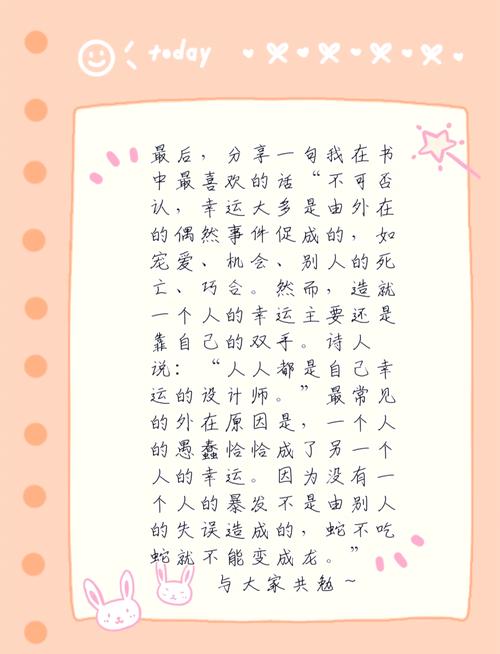 today
最后，分享一句我在书
中最喜欢的话“不可否
认，幸运大多是由外在
的偶然事件促成的，如
宠爱、机会、别人的死
亡、巧合。然而，造就
一个人的幸运主要还是
靠自己的双手。诗人
说：“人人都是自己幸
运的设计师。”最常见
的外在原因是，一个人
的愚蠢恰恰成了另一个
人的幸运。因为没有一
个人的暴发不是由别人
的失误造成的，蛇不吃
蛇就不能变成龙。”
与大家共勉～